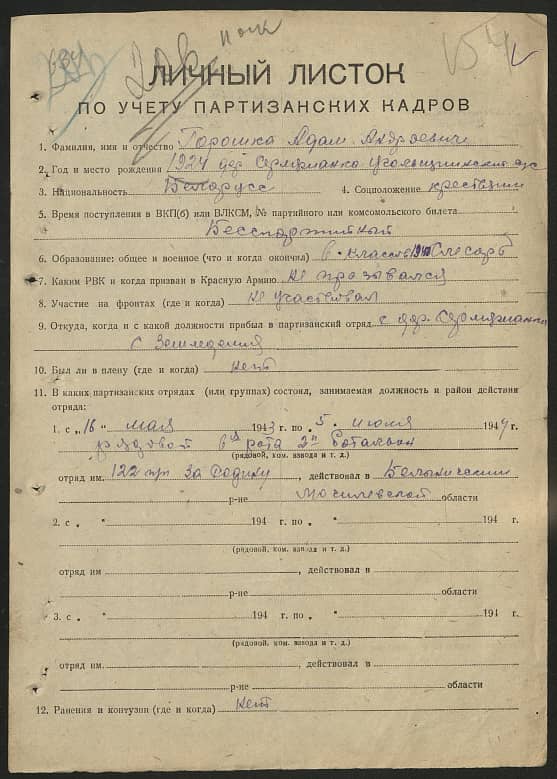 ЛИЧНЫЙ ЛИСТОК
ПО УЧЕТУ ПАРТИЗАНСКИХ КАДРОВ
1. Фамилия, имя и отчество Горошка Адам Андреевич
2. Год и место рождения 1924 дер.
3. Национальность Белорусс 4. Соцположение крестянин
5. Время поступления в ВКП(б) или ВЛКСМ, № партийного или комсомольского билета
Беспартийный
6. Образование: общее и военное (что и когда окончил) 6. классов слесарь
7. Каким РВК и когда призван в Красную Армию не празывался
8. Участие на фронтах (где и когда) не участвовал
9. Откуда, когда и с какой должности прибыл в партизанский отряд с дер.
с Земледелия
10. Был ли в плену (где и когда) нет
11. В каких партизанских отрядах (или группах) состоял, занимаемая должность и район действия
отряда:
1. с „16 " мая 1943 г. по „5. июля 1944 г.
рядовой 6й рота 2й Баталион
(рядовой, ком. взвода и т. д.)
отряд им. 122 пп За Родину, действовал в Белыническим
р-не Могилевской области
2. с „ " 194 г. по „ " 194 г.
(рядовой, ком. взвода и т. д.)
отряд им , действовал в
р-не области
3. с „ " 194 г. по „ " 194 г.
(рядовой, ком. взвода и т. д.)
отряд им. , действовал в
р-не области
12. Ранения и контузии (где и когда) нет